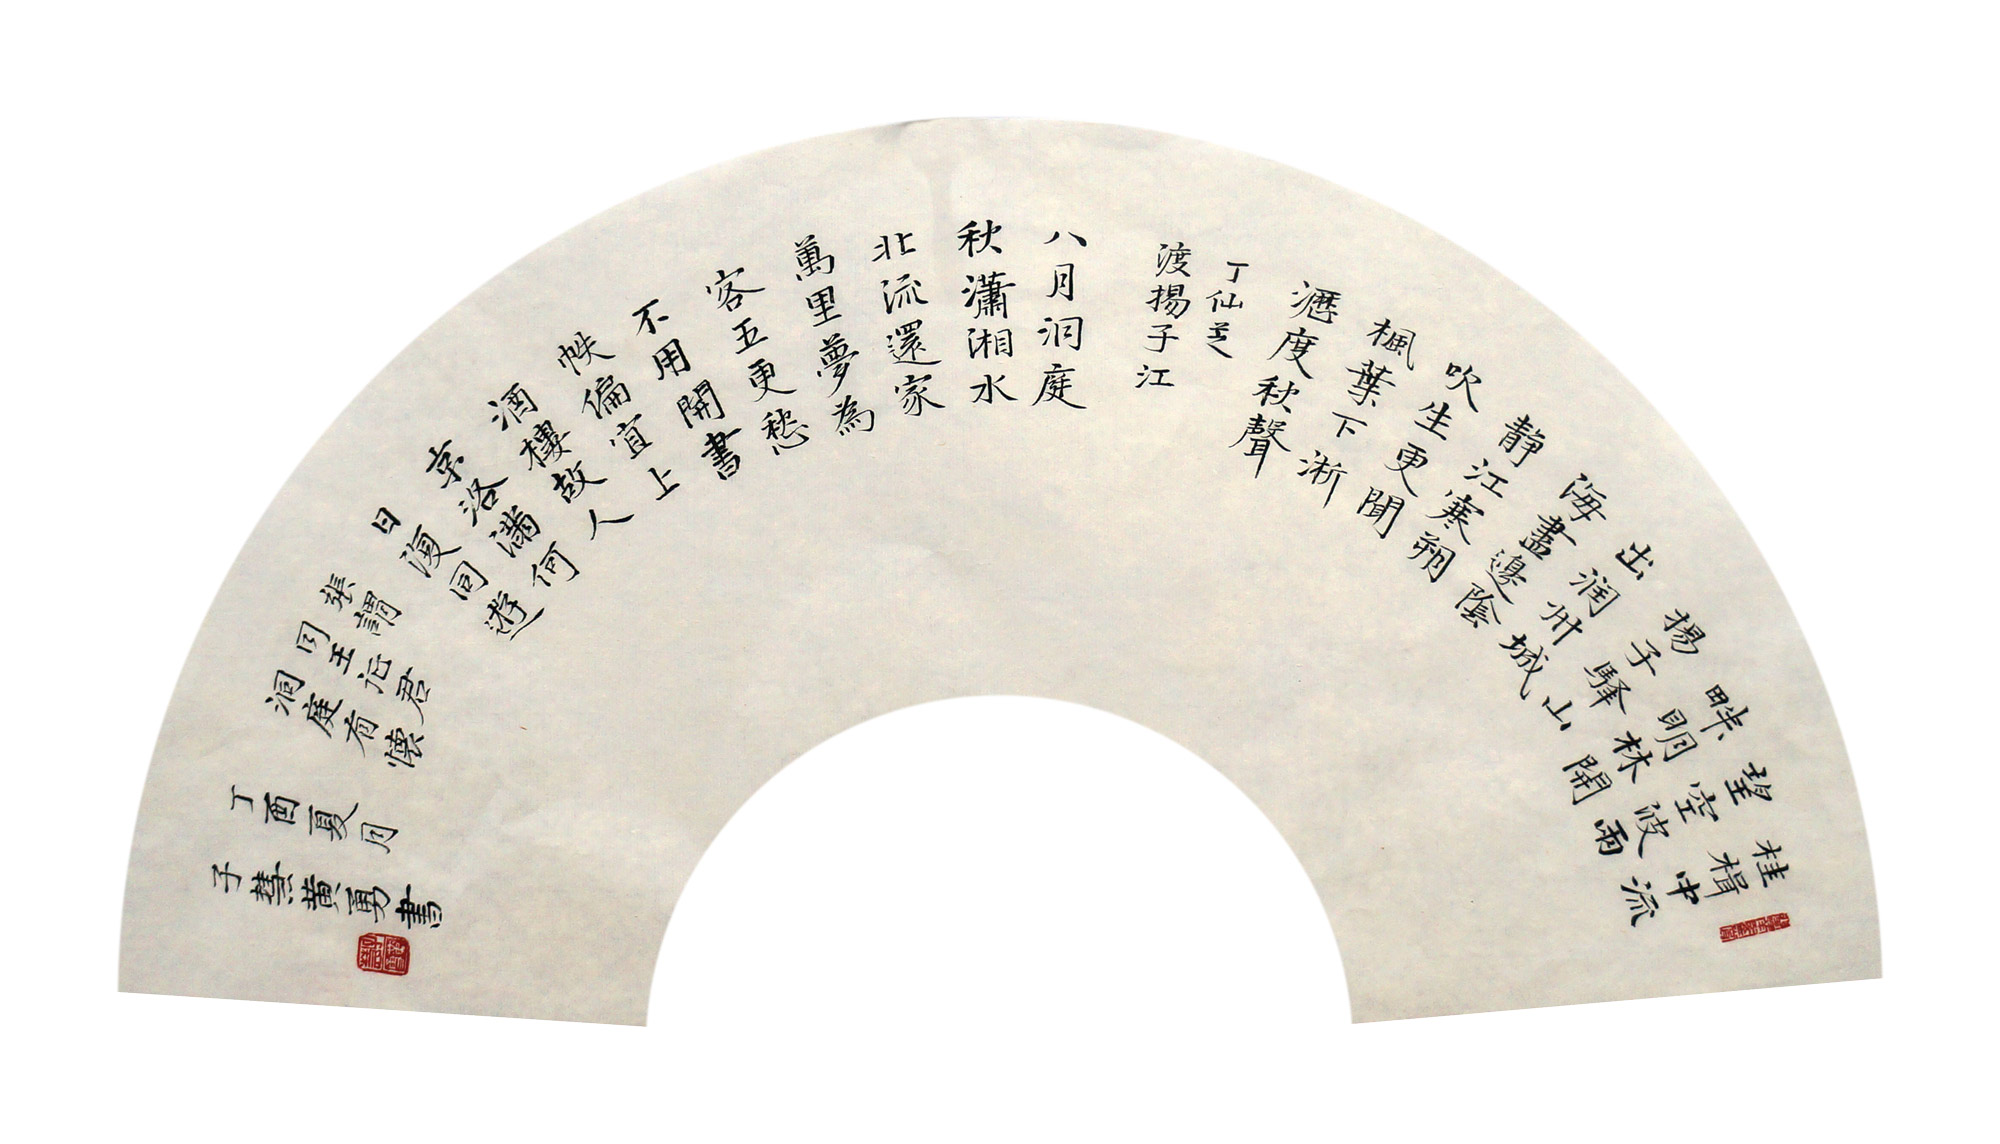 桂楫中流
望空波兩
畔明林開
揚子驿山
出润州城
海盡邊陰
静江寒朔
吹生更聞
楓葉下淅
瀝度秋聲
丁仙芝
渡揚子江
八月洞庭
秋瀟湘水
北流還家
萬里夢為
客五更愁
不用開書
帙偏宜上
酒樓故人
京洛滿何
日復同遊
張謂
同王征君
洞庭有懷
丁酉夏月
子慧黄勇書